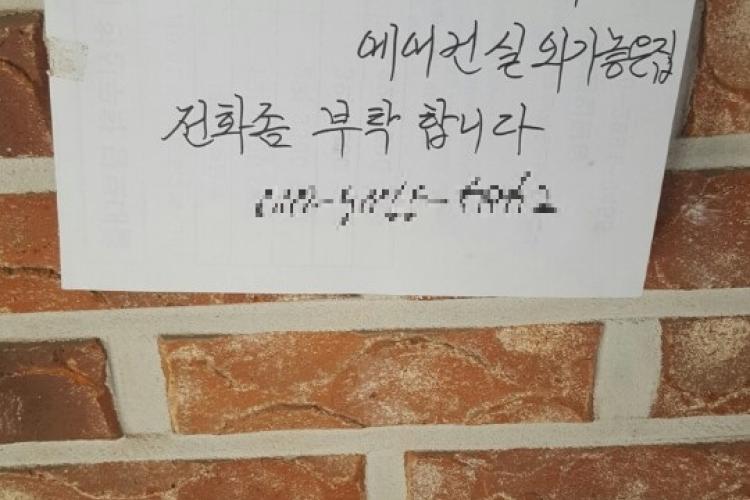 에어컨 실외가놓은집
전화좀 부탁 합니다